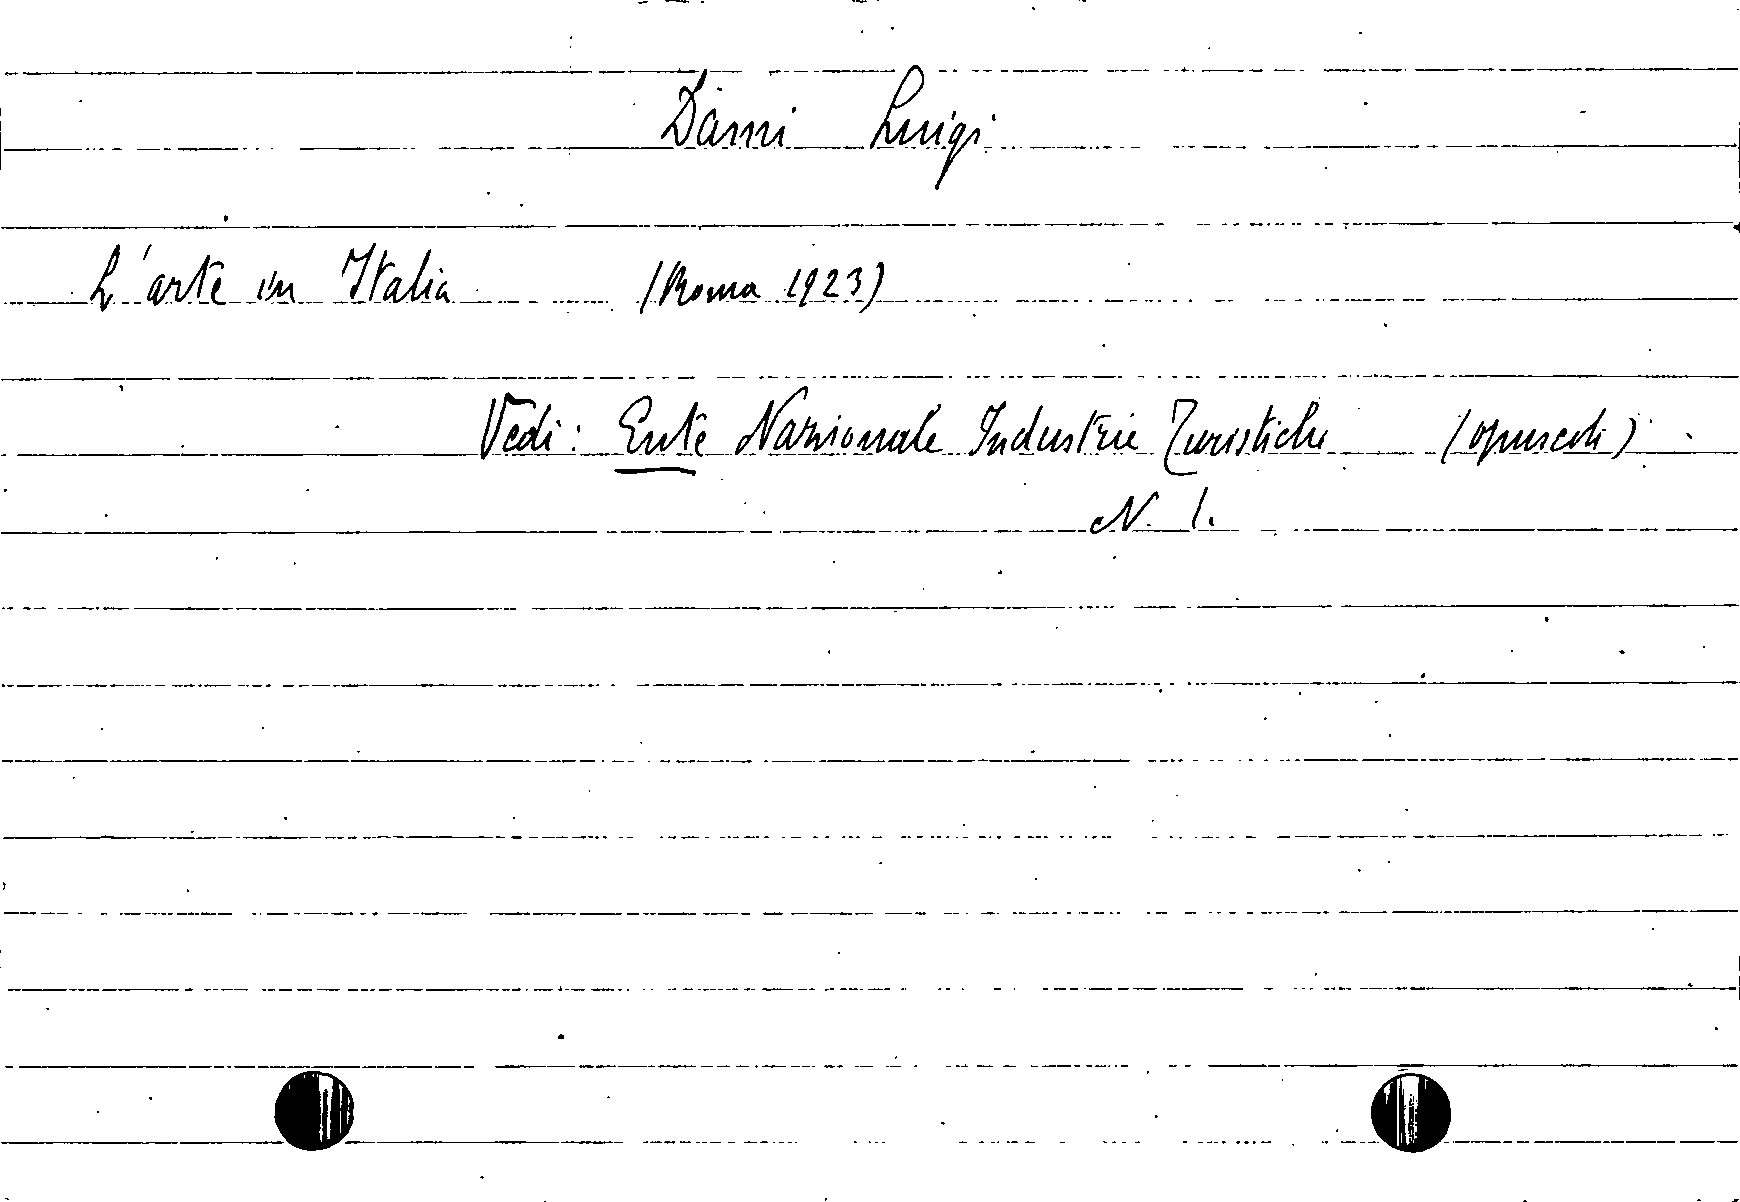 Dami Luigi
L'arte in Italia (Roma 1923)
Vedi: Ente Nazionale Industrie Turistiche (opuscoli)
N. 1.